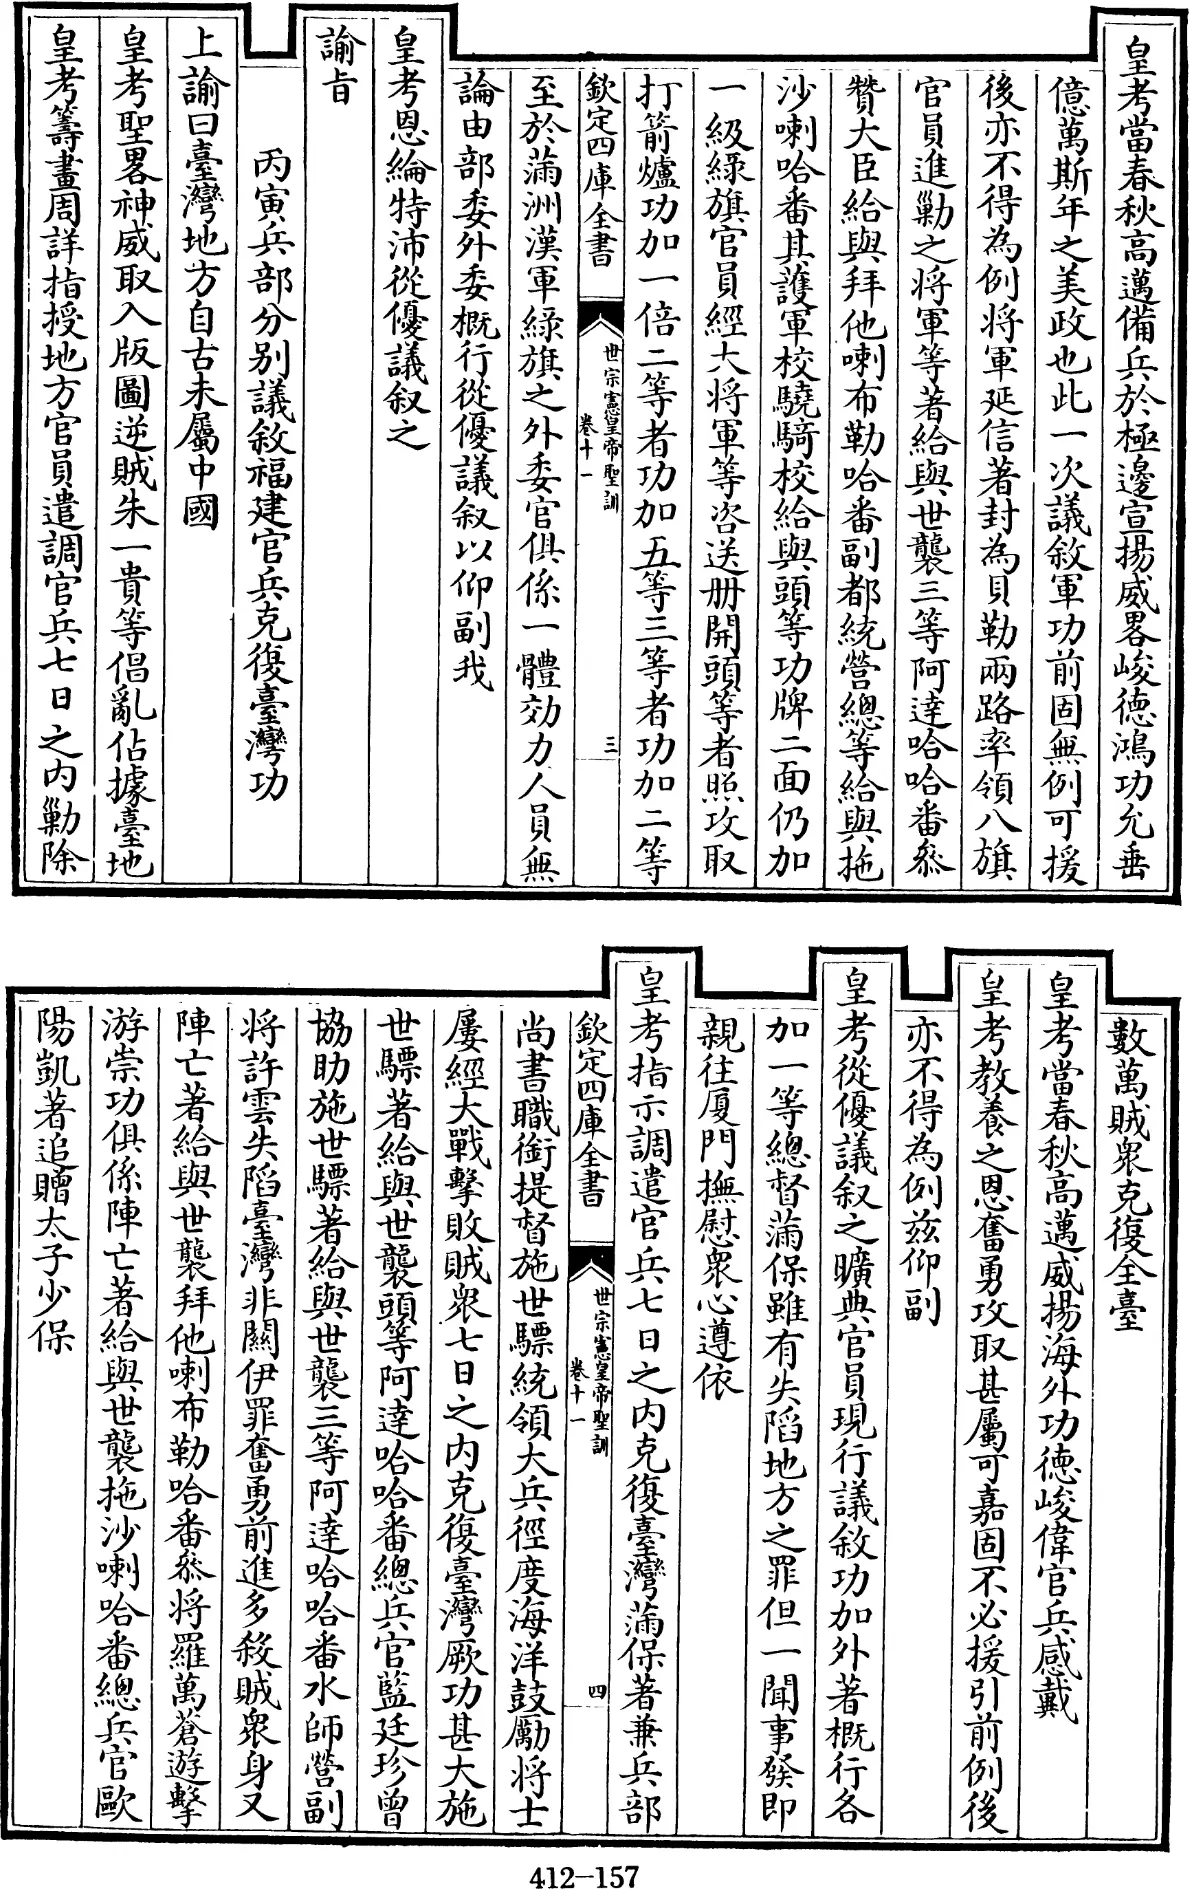 皇考當春秋高邁備兵於極邊宣揚威畧峻德鴻功允垂
億萬斯年之美政也此一次議敘軍功前固無例可援
後亦不得為例將軍延信著封為貝勒兩路率領八旗
官員進勦之將軍等著給與世襲三等阿達哈哈番叅
贊大臣給與拜他喇布勒哈番副都統營總等給與拖
沙喇哈番其護軍校驍騎校給與頭等功牌二面仍加
一級綠旗官員經大將軍等咨送册開頭等者照攻取
打箭爐功加一倍二等者功加五等三等者功加二等
欽定四庫全書
世宗憲皇帝聖訓
卷十一
三
至於滿洲漢軍綠旗之外委官俱係一體効力人員無
論由部委外委概行從優議敘以仰副我
皇考恩綸特沛從優議叙之
諭旨
丙寅兵部分別議敘福建官兵克復臺灣功
上諭曰臺灣地方自古未屬中國
皇考聖畧神威取入版圖逆賊朱一貴等倡亂佔據臺地
皇考籌畫周詳指授地方官員遣調官兵七日之内勦除
數萬賊衆克復全臺
皇考當春秋高邁威揚海外功德峻偉官兵感戴
皇考教養之恩奮勇攻取甚屬可嘉固不必援引前例後
亦不得為例兹仰副
皇考從優議叙之曠典官員現行議敘功加外著概行各
加一等總督滿保雖有失陷地方之罪但一聞事發即
親往厦門撫慰衆心遵依
皇考指示調遣官兵七日之内克復臺灣滿保著兼兵部
欽定四庫全書
世宗憲皇帝聖訓
卷十一
四
尚書職銜提督施世驃統領大兵徑度海洋鼓勵將士
屢經大戰擊敗賊衆七日之内克復臺灣厥功甚大施
世驃著給與世襲頭等阿達哈哈番總兵官藍廷珍曾
協助施世驃著給與世襲三等阿達哈哈番水師營副
將許雲失陷臺灣非關伊罪奮勇前進多殺賊衆身又
陣亡著給與世襲拜他喇布勒哈番叅將羅萬蒼遊擊
游崇功俱係陣亡著給與世襲拖沙喇哈番總兵官歐
陽凱著追贈太子少保
412-157